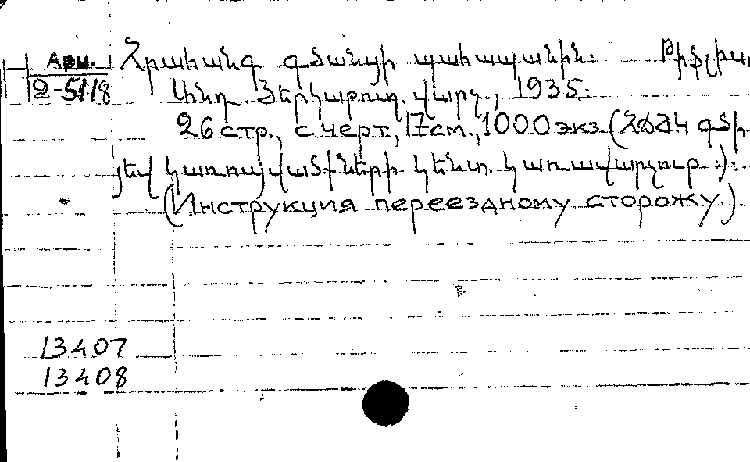 Арм. Հրահանգ գծանցի պահապանին: Թիֆլիս,
2-5118 Անդր. Յերկաթուղ. վարչ., 1935.
26 стр., с черт., 17 см., 1000 экз. (ԶՍՖԽՀ գծի
յեվ կառուցվածքների կենտ. կառավարչութ.):
(Инструкция переездному сторожу.)
13407
13408